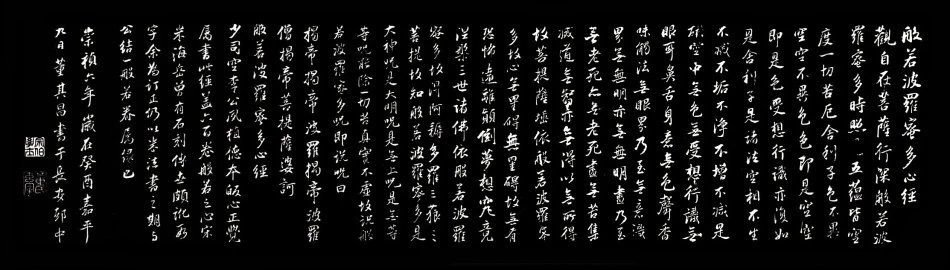 般若波羅蜜多心經
觀自在菩薩行深般若波
羅蜜多時照五蘊皆空
度一切苦厄舍利子色不異
空空不異色色即是空空
即是色受想行識亦復如
是舍利子是諸法空相不生
不滅不垢不淨不增不減是
故空中無色無受想行識無
眼耳鼻舌身意無色聲香
味觸法無眼界乃至無意識
界無無明亦無無明盡乃至
無老死亦無老死盡無苦集
滅道無智亦無得以無所得
故菩提薩埵依般若波羅蜜
多故心無罣礙無罣礙故無有
恐怖遠離顛倒夢想究竟
涅槃三世諸佛依般若波羅
蜜多故得阿耨多羅三藐三
菩提故知般若波羅蜜多是
大神咒是大明咒是無上咒是無等
等咒能除一切苦真實不虛故說般
若波羅蜜多咒即說咒曰
揭帝揭帝波羅揭帝波羅
僧揭帝菩提薩婆訶
般若波羅蜜多心經
少司空李公威相德本皈心正覺
屬書此經蓋六百卷般若之心宋
米海岳曾有石刻傳世頗訛
字余為訂正仍以米法書之期與
公結一般若眷屬已
崇禎六年歲在癸酉嘉平
九日董其昌書于長安邸中